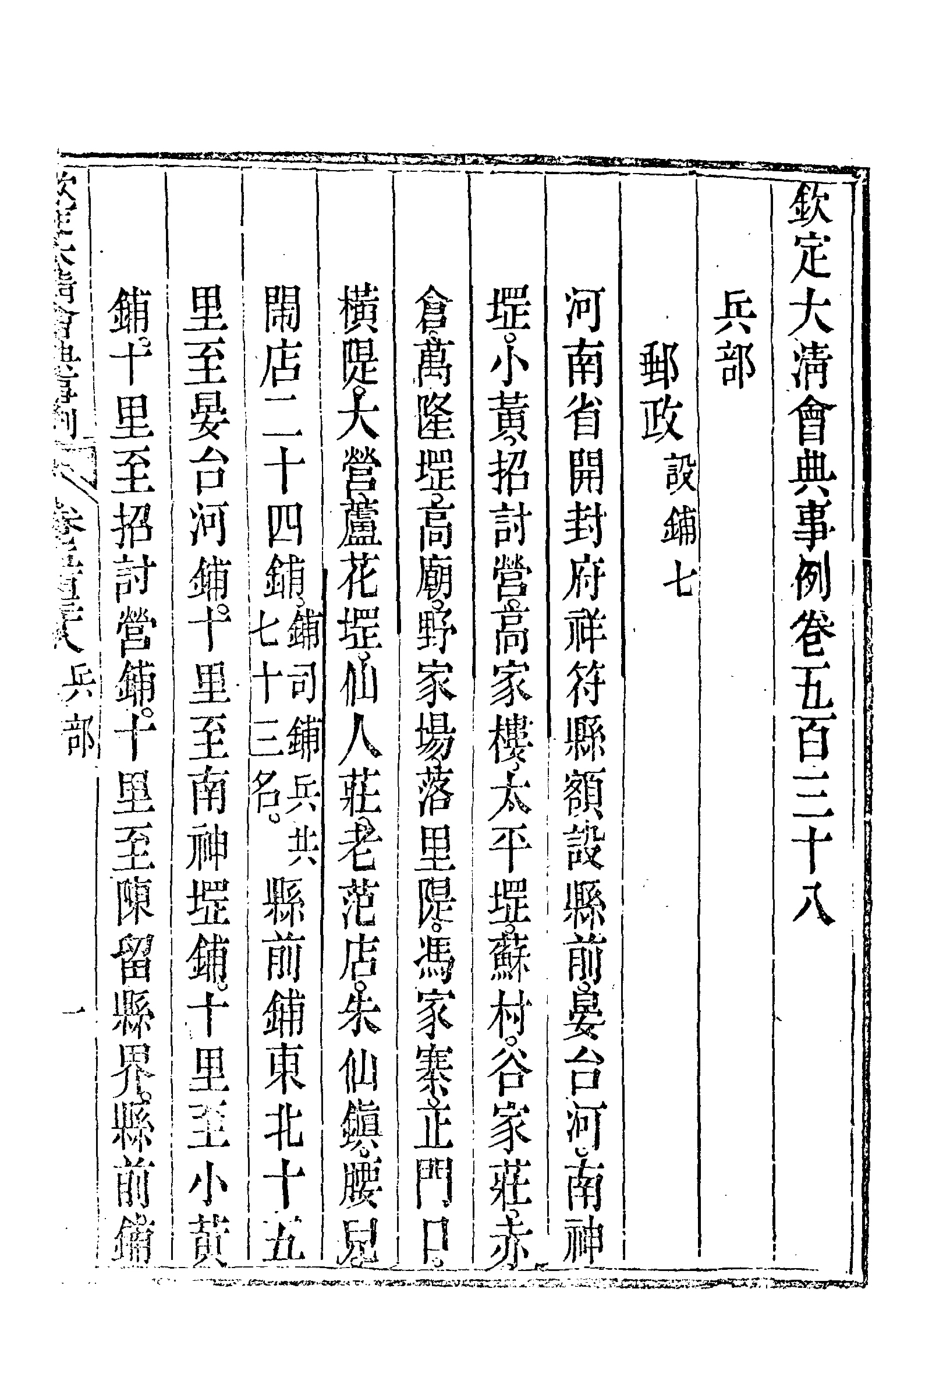 欽定大淸會典事例卷五百三十八
兵部
郵政設鋪七
河南省開封府祥符縣額設縣前。晏台河。南神
堽。小黃。招討營。高家樓。太平堽。蘇村。谷家莊。赤
倉。萬隆堽。高廟。野家場。落里隄。馮家寨。正門口。
橫隄。大營。蘆花堽。仙人莊。老范店。朱仙鎭。腰
鬧店二十四鋪。鋪司鋪兵共七十三名。縣前鋪東北十五
里至晏台河鋪。十里至南神堽鋪。十里至小黃
鋪。十里至招討營鋪。十里至陳留縣界。縣前鋪
欽定大淸會典事例 卷五百三十八 兵部 一